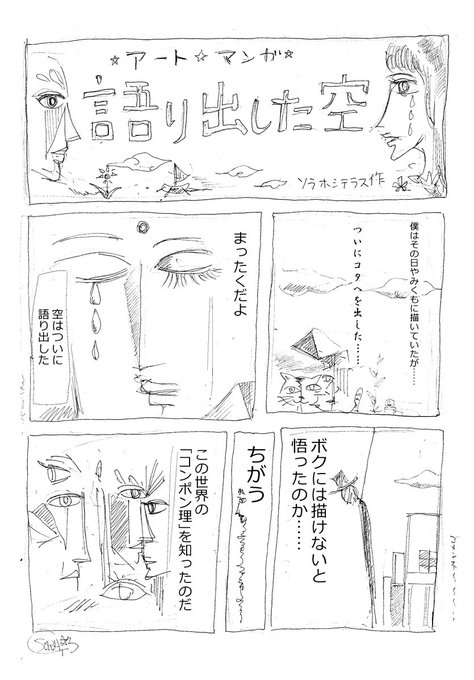 ☆アート☆マンガ☆
語り出した空
ソラホシテラス作
僕はその日やみくもに描いていたが……
ついにコタヘを出した……
まったくだよ
空はついに
語り出した
ボクには描けないと
悟ったのか……
ちがう
この世界の
「コンポン理」を知ったのだ